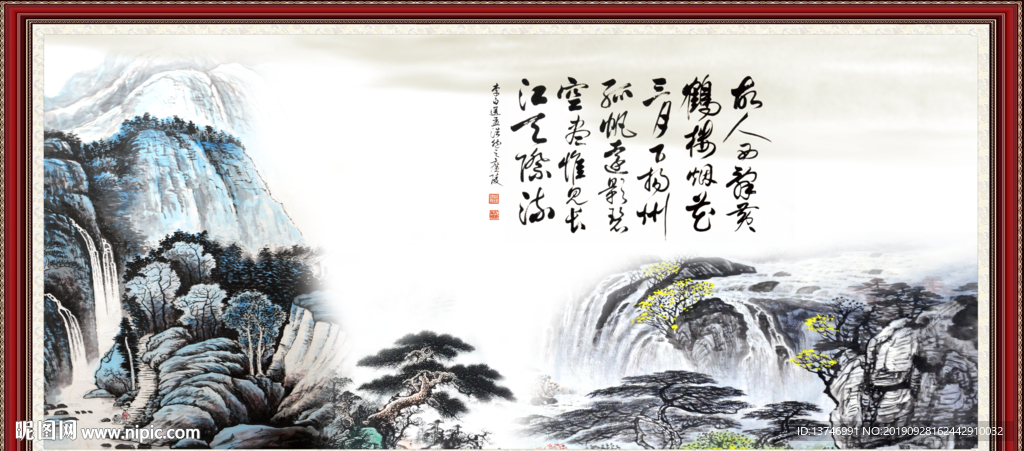 故人西辞黄
鹤楼烟花
三月下扬州
孤帆远影碧
空尽惟见长
江天际流
李白送孟浩然之广陵
昵图网 www.nipic.com
ID:13746991 NO:20190928162442910032